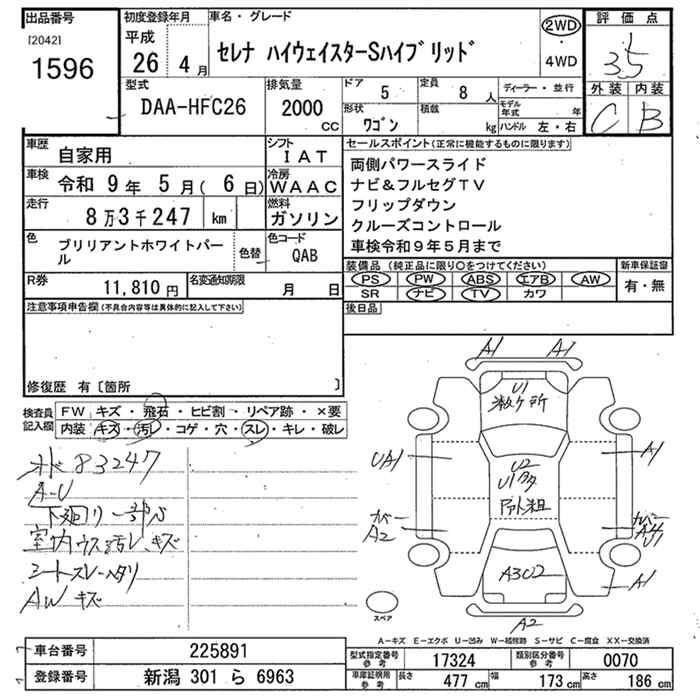 出品番号 初度登録年月 車名・グレード 評価点
[2042] 平成
1596 26 4月 セレナ ハイウェイスターSハイブリッド 2WD・4WD 3.5
型式 排気量 ドア 5 定員 8人 ディーラー・並行 外装 内装
DAA-HFC26 2000cc 形状 ワゴン 積載 kg モデル年式 年 ハンドル 左・右 C B
車歴 自家用 シフト IAT セールスポイント(正常に機能するものに限ります)
車検 令和 9年 5月( 6日) 冷房 WAAC 両側パワースライド
走行 8万3千247 km 燃料 ガソリン ナビ&フルセグTV
フリップダウン
クルーズコントロール
車検令和9年5月まで
色 ブリリアントホワイトパール 色替 色コード QAB
装備品(純正品に限り○をつけてください) 新車保証書
PS PW ABS エアB AW 有・無
SR ナビ TV カワ
R券 11,810円 名変通知期限 月 日
注意事項申告欄(不具合内容等は具体的に記入して下さい) 後日品
修復歴 有〔箇所 〕
検査員記入欄 FW キズ・飛石・ヒビ割・リペア跡・×要
内装 キズ・汚レ・コゲ・穴・スレ・キレ・破レ
83247
A-U
下廻り一部サビ
室内ウス汚レ、キズ
シートスレ・ヘタリ
AW キズ
A1 A1
U1
U2
UA1 A1
カバー A2
A3U2
A1
A2
スペア
A-キズ E-エクボ U-凹み W-補修跡 S-サビ C-腐食 XX-交換済
車台番号 225891
登録番号 新潟 301 ら 6963
型式指定番号 参考 17324 類別区分番号 参考 0070
車庫証明用 参考 長さ 477cm 幅 173cm 高さ 186cm